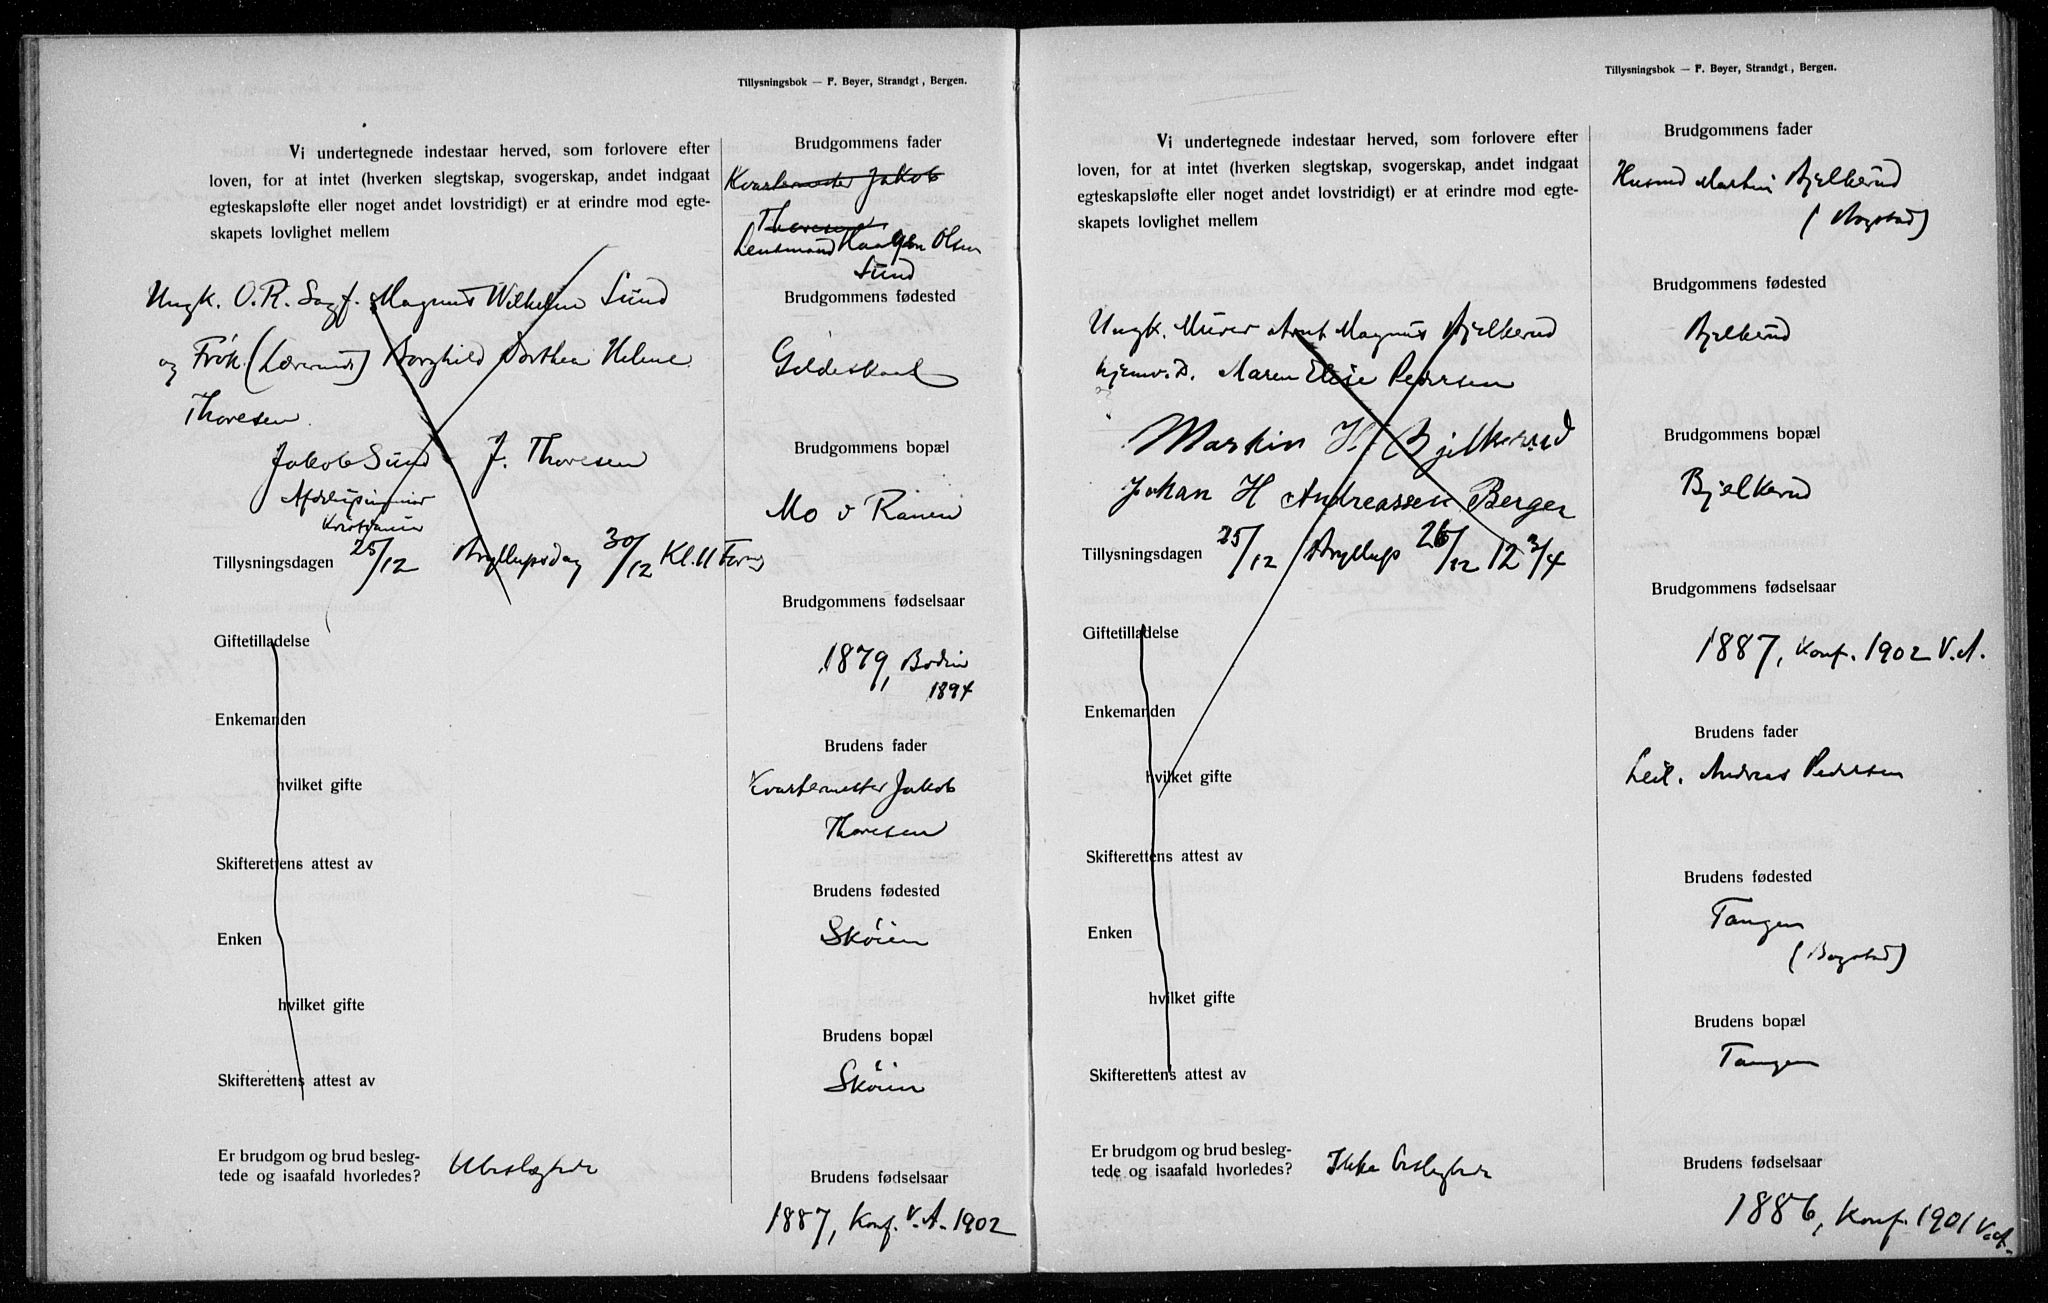 Tillysningsbok — F. Beyer, Strandgt, Bergen.
Vi undertegnede indestaar herved, som forlovere efter
loven, for at intet (hverken slegtskap, svogerskap, andet indgaat
egteskapsløfte eller noget andet lovstridigt) er at erindre mod egte-
skapets lovlighet mellem
Ungk. O. R. Sagf. Magnus Wilhelm Sund
og Frøk. (Lærerinde) Borghild Dorthea Helene
Thoresen
Jakob Sund J. Thoresen
Kristiania
Tillysningsdagen 25/12 Bryllupsdag 30/12 Kl. 11 Form
Giftetilladelse
Enkemanden
hvilket gifte
Skifterettens attest av
Enken
hvilket gifte
Skifterettens attest av
Er brudgom og brud besleg-
tede og isaafald hvorledes? Ubeslægtede
Brudgommens fader
Kvartermester Jakob
Thoresen
Lensmand Haagen Olsen
Sund
Brudgommens fødested
Gildeskaal
Brudgommens bopæl
Mo i Ranen
Brudgommens fødselsaar
1879, Bodin
1894
Brudens fader
Kvartermester Jakob
Thoresen
Brudens fødested
Skøien
Brudens bopæl
Skøien
Brudens fødselsaar
1887, Konf. V. A. 1902
Tillysningsbok — F. Beyer, Strandgt, Bergen.
Vi undertegnede indestaar herved, som forlovere efter
loven, for at intet (hverken slegtskap, svogerskap, andet indgaat
egteskapsløfte eller noget andet lovstridigt) er at erindre mod egte-
skapets lovlighet mellem
Ungk. Murer Arnt Magnus Bjelkerud
hjemv. D. Maren Elise Pedersen
Martin H. Bjelkerud
Johan H Andreassen Berger
Tillysningsdagen 25/12 Bryllup 26/12 12 3/4
Giftetilladelse
Enkemanden
hvilket gifte
Skifterettens attest av
Enken
hvilket gifte
Skifterettens attest av
Er brudgom og brud besleg-
tede og isaafald hvorledes? Ikke beslegtede
Brudgommens fader
Husmd Martin Bjelkerud
(Bogstad)
Brudgommens fødested
Bjelkerud
Brudgommens bopæl
Bjelkerud
Brudgommens fødselsaar
1887, Konf. 1902 V. A.
Brudens fader
Leil. Andreas Pedersen
Brudens fødested
Tangen
(Bogstad)
Brudens bopæl
Tangen
Brudens fødselsaar
1886, Konf. 1901 V. A.